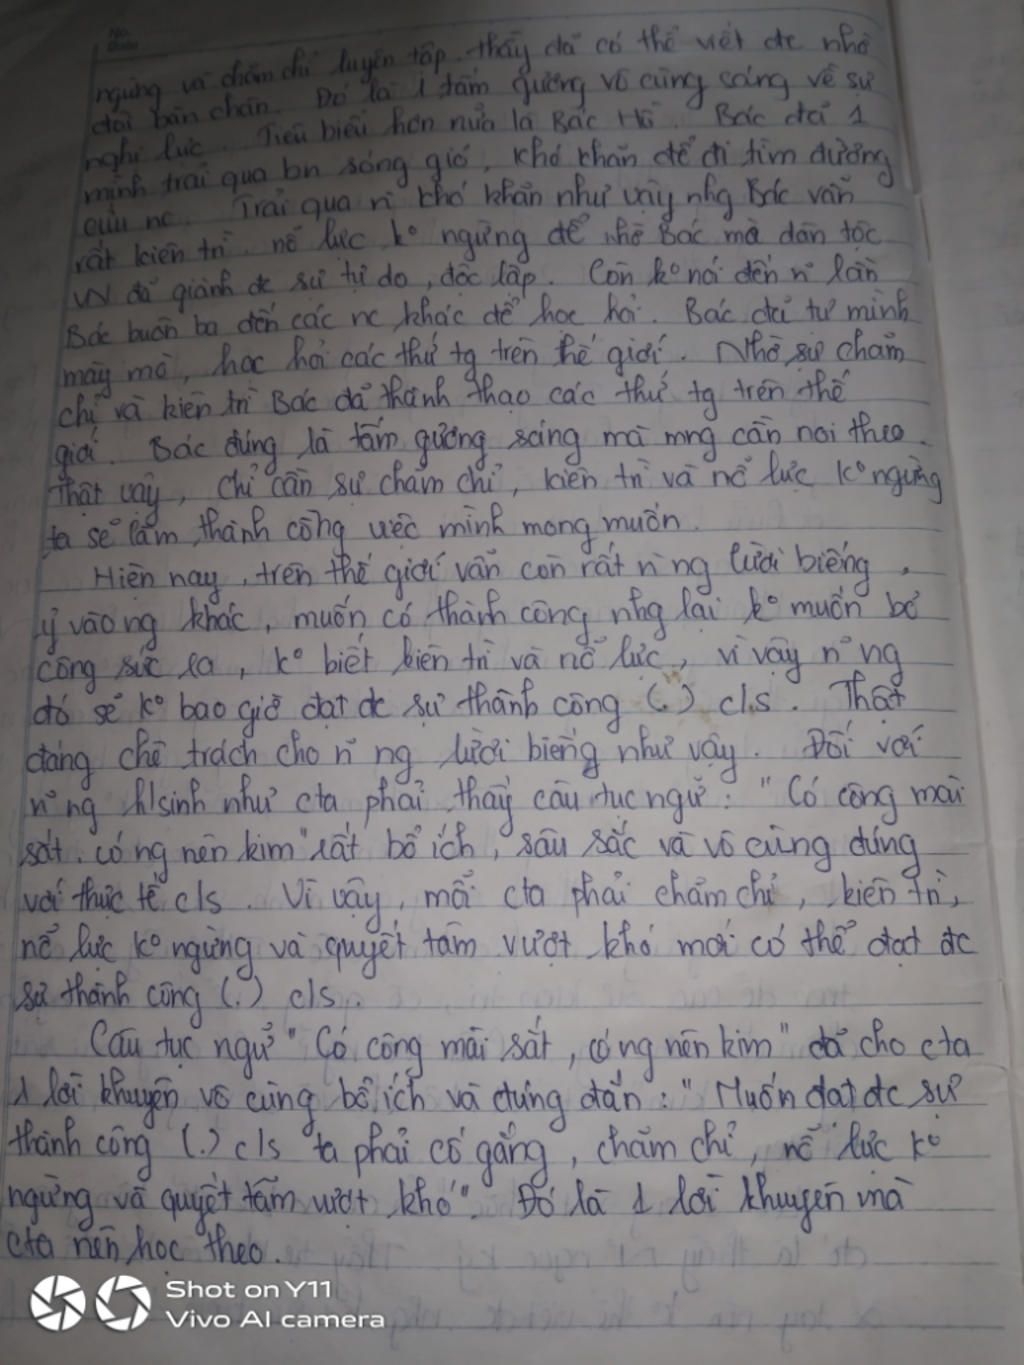 ngừng và chăm chỉ luyện tập, thầy đã có thể viết đc nhờ
đôi bàn chân. Đó là 1 tấm gương vô cùng sáng về sự
nghị lực. Tiêu biểu hơn nữa là Bác Hồ. Bác đã 1
mình trải qua bn sóng gió, khó khăn để đi tìm đường
cứu nc. Trải qua n~ khó khăn như vậy nhg Bác vẫn
rất kiên trì, nổ lực ko ngừng để nhờ Bác mà dân tộc
VN đã giành đc sự tự do, độc lập. Còn ko nói đến n~ lần
Bác buôn ba đến các nc khác để học hỏi. Bác đã tự mình
mày mò, học hỏi các thứ tg trên thế giới. Nhờ sự chăm
chỉ và kiên trì Bác đã thành thạo các thứ tg trên thế
giới. Bác đúng là tấm gương sáng mà mng cần noi theo.
Thật vậy, chỉ cần sự chăm chỉ, kiên trì và nổ lực ko ngừng
ta sẽ làm thành công việc mình mong muốn.
Hiện nay, trên thế giới vẫn còn rất n~ ng lười biếng,
ỷ vào ng khác, muốn có thành công nhg lại ko muốn bỏ
công sức ra, ko biết kiên trì và nổ lực, vì vậy n~ ng
đó sẽ ko bao giờ đạt đc sự thành công (.) c/s. Thật
đáng chê trách cho n~ ng lười biếng như vậy. Đối với
n~ ng h/sinh như cta phải thấy câu tục ngữ: "Có công mài
sắt, có ng nên kim" rất bổ ích, sâu sắc và vô cùng đúng
với thực tế c/s. Vì vậy, mỗi cta phải chăm chỉ, kiên trì,
nổ lực ko ngừng và quyết tâm vượt khó mới có thể đạt đc
sự thành công (.) c/s.
Câu tục ngữ "Có công mài sắt, có ng nên kim" đã cho cta
1 lời khuyên vô cùng bổ ích và đúng đắn: "Muốn đạt đc sự
thành công (.) c/s ta phải cố gắng, chăm chỉ, nổ lực ko
ngừng và quyết tâm vượt khó". Đó là 1 lời khuyên mà
cta nên học theo.
Shot on Y11
Vivo AI camera